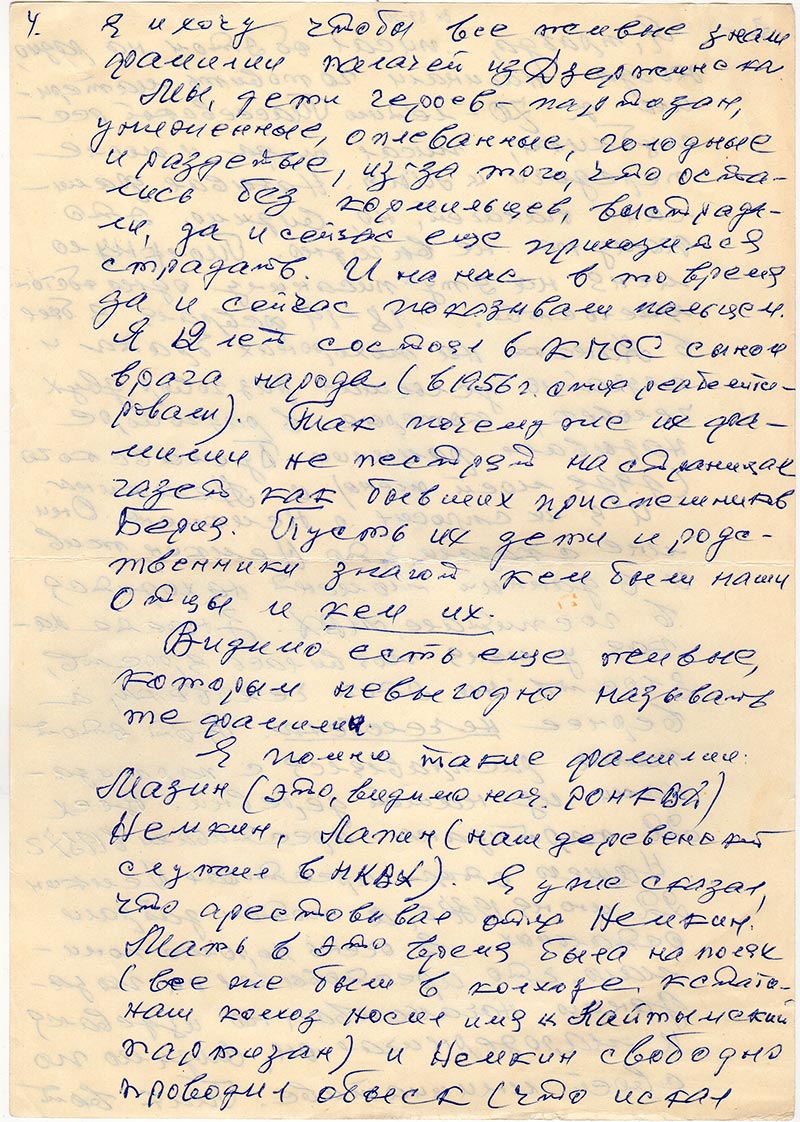 4. Я и хочу чтобы все живые знали
фамилии палачей из Дзержинска.
Мы, дети героев-партизан,
униженные, оплеванные, голодные
и раздетые, из-за того, что оста-
лись без кормильцев, выстрада-
ли, да и сейчас еще приходится
страдать. И на нас в то время
да и сейчас показывали пальцем.
Я 12 лет состоял в КПСС сыном
врага народа (в 1956 г. отца реабилити-
ровали). Так почему же их фа-
милии не пестрят на страницах
газет как бывших приспешников
Берия. Пусть их дети и родс-
твенники знают кем были наши
отцы и кем их.
Видимо есть еще живые,
которым невыгодно называть
те фамилии.
Я помню такие фамилии:
Мазин (это, видимо нач. РОНКВД)
Немкин, Лапин (наш деревенский
служил в НКВД). Я уже сказал,
что арестовывал отца Немкин.
Мать в это время была на полях
(все же были в колхозе, кстати
наш колхоз носил имя Кайтымский
партизан) и Немкин свободно
проводил обыск (что искал